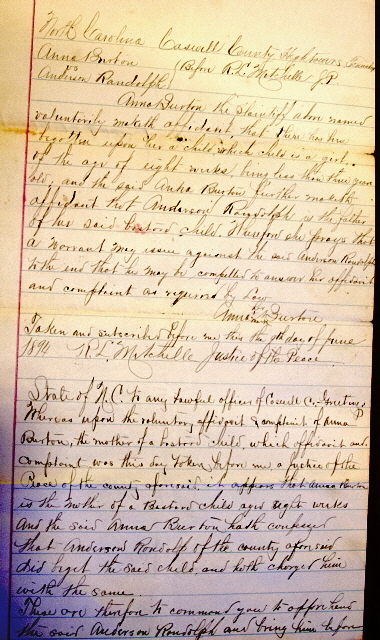 North Carolina Caswell County Hightowers Township
Anna Burton
vs (Before R.L. Mitchelle J.P.
Anderson Randolph)
Anna Burton the plaintiff above named
voluntarily maketh affidavit that there has been
begotten upon her a child, which child is a girl
of the age of eight weeks, being less than three years
old, and the said Anna Burton further maketh
affidavit that Anderson Randolph is the father
of her said bastard child. Wherefore she prays that
a warrant may issue against the said Anderson Randolph
to the end that he may be compelled to answer her affidavit
and complaint as required by Law
Anna her mark Burton
Taken and subscribed before me this the day of June
1894 R.L. Mitchelle Justice of the Peace
State of N.C. to any lawful officer of Caswell Co. Greeting
Whereas upon the voluntary affidavit & complaint of Anna
Burton, the mother of a bastard child, which affidavit and
complaint was this day taken before me a Justice of the
Peace of the county aforesaid, it appears that Anna Burton
is the mother of a Bastard child aged eight weeks
And the said Anna Burton hath confessed
that Anderson Randolph of the county aforesaid
did beget the said child, and hath charged him
with the same.
These are therefore to command you to apprehend
the said Anderson Randolph and bring him before